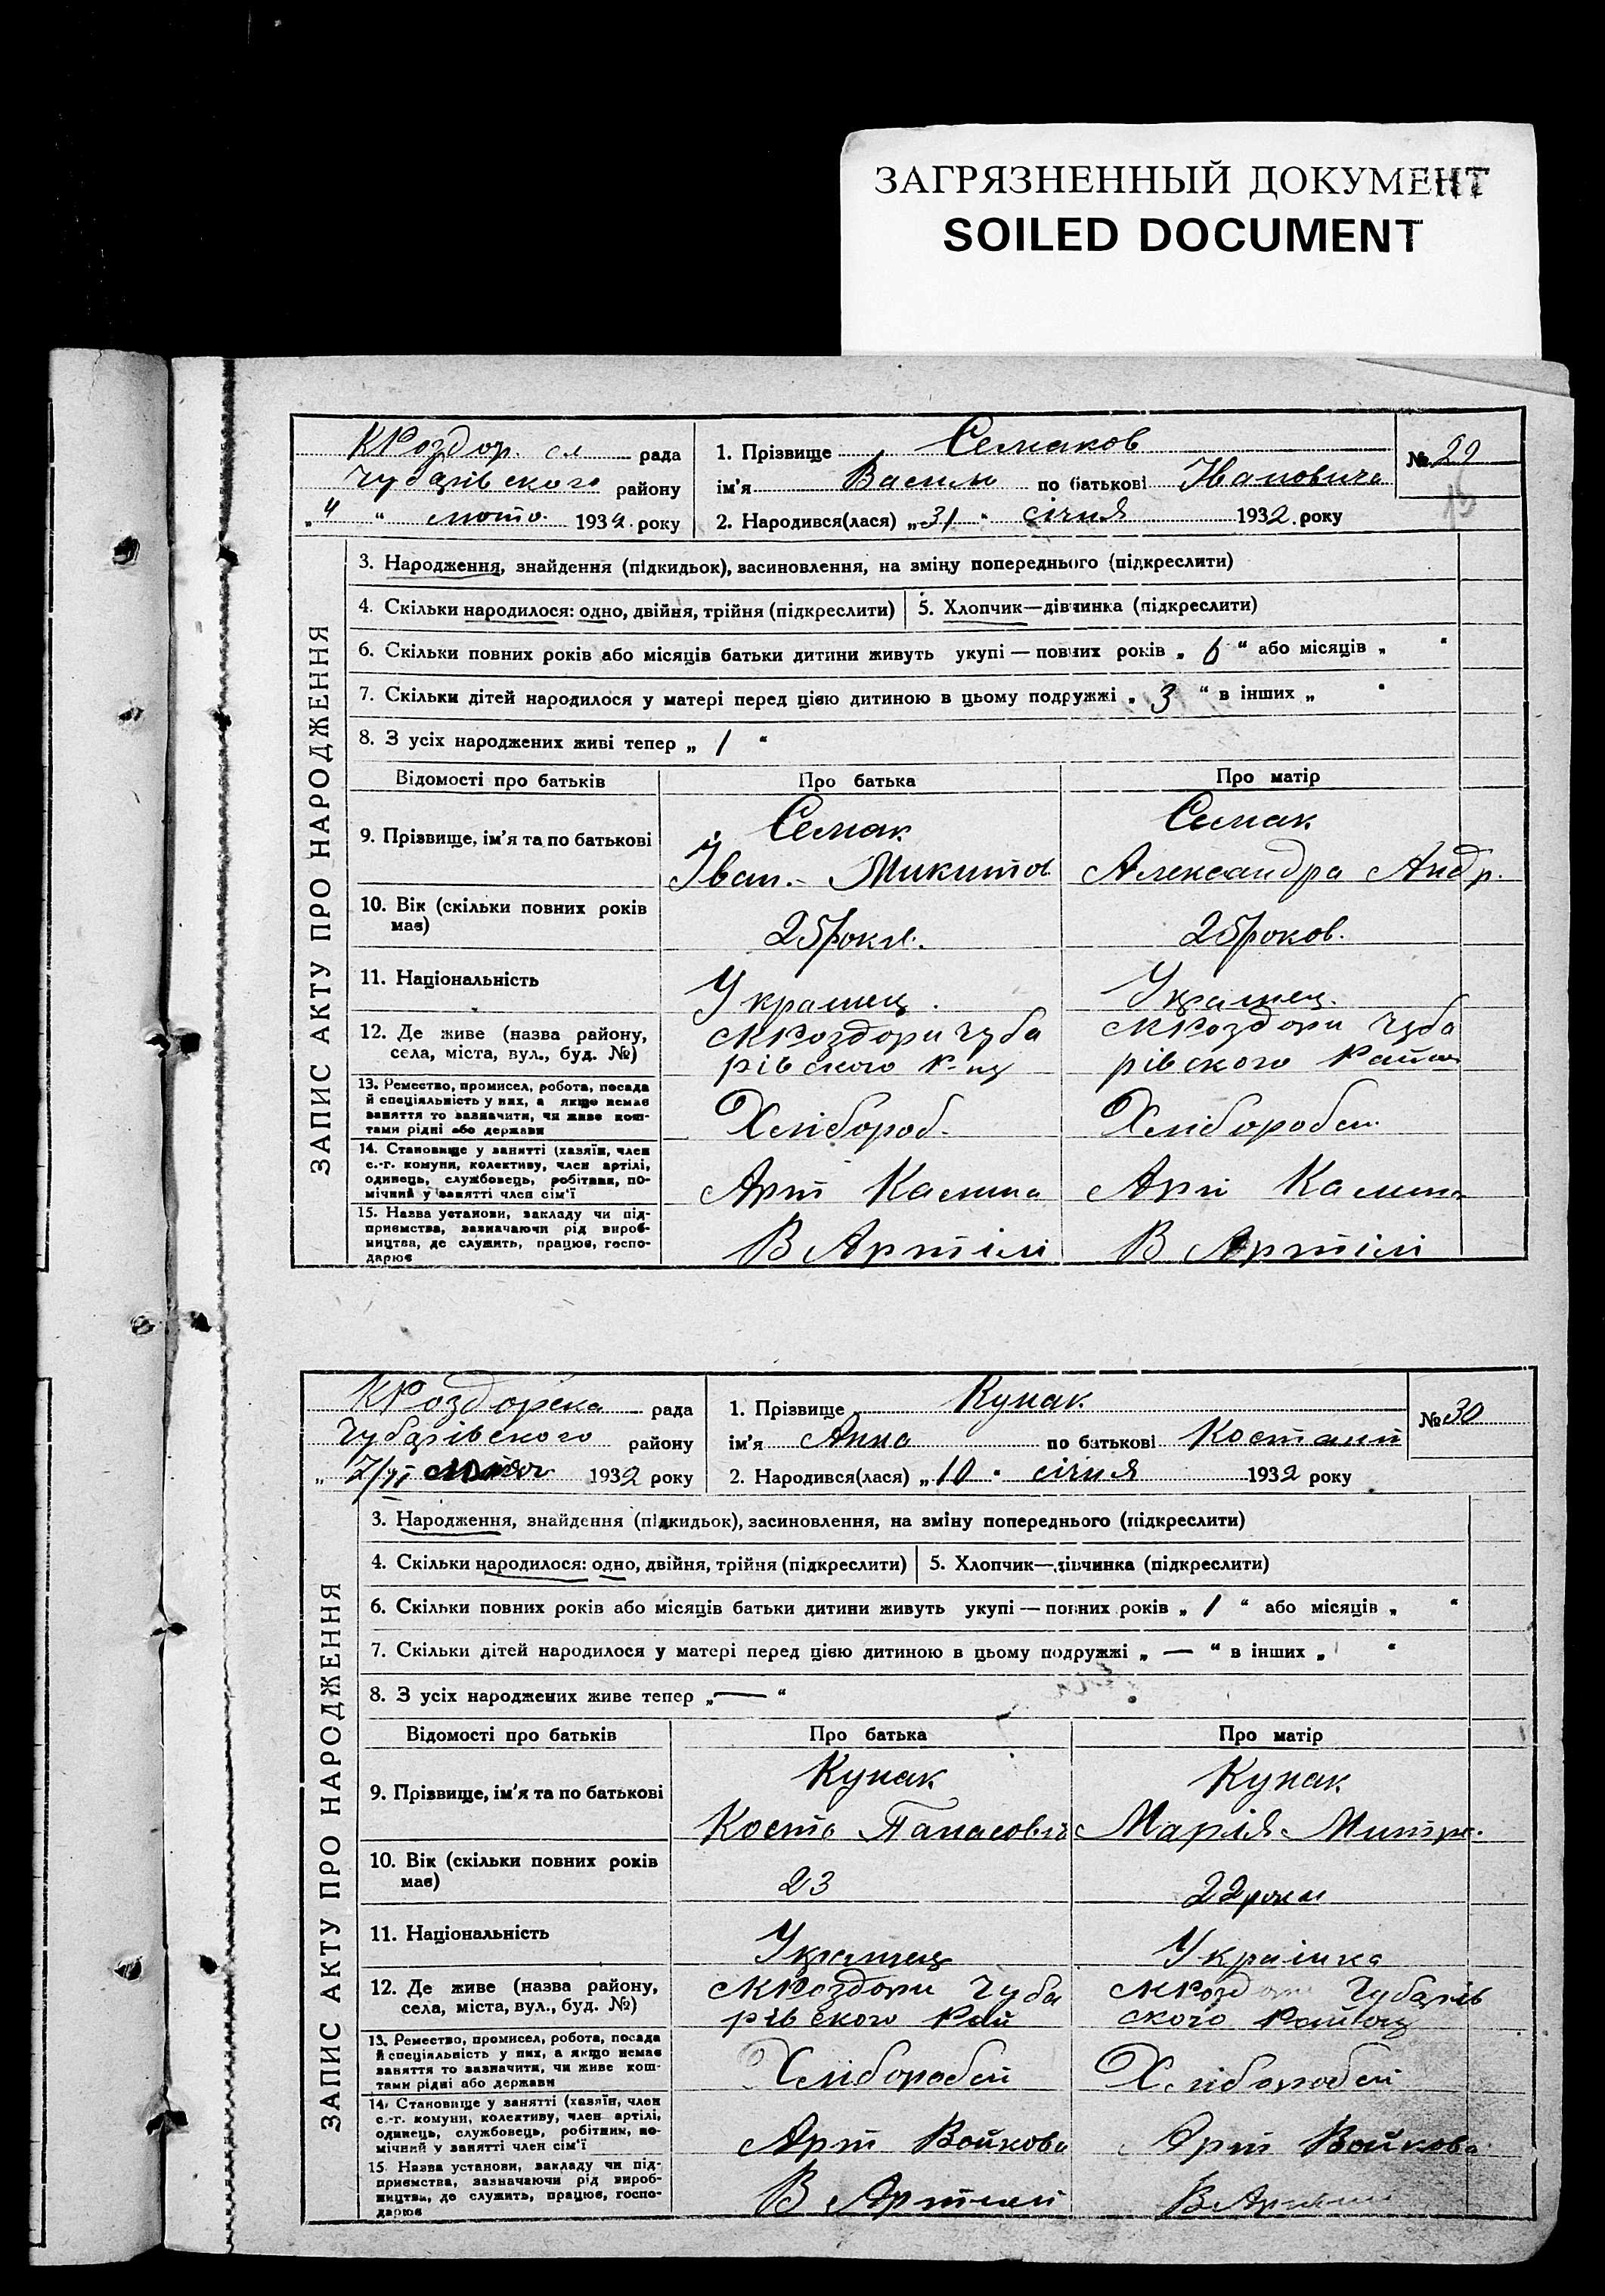 ЗАГРЯЗНЕННЫЙ ДОКУМЕНТ
SOILED DOCUMENT
КРоздор. сл рада
Чубарівского району
„4“ люто 1932 року
1. Прізвище Семаков
ім’я Василь по батькові Івановича
2. Народився(лася) „31“ січня 1932 року
№ 29
ЗАПИС АКТУ ПРО НАРОДЖЕННЯ
3. Народження, знайдення (підкидьок), засиновлення, на зміну попереднього (підкреслити)
4. Скільки народилося: одно, двійня, трійня (підкреслити) 5. Хлопчик—дівчинка (підкреслити)
6. Скільки повних років або місяців батьки дитини живуть укупі — повних років „ 6 “ або місяців „ “
7. Скільки дітей народилося у матері перед цією дитиною в цьому подружжі „ 3 “ в інших „ “
8. З усіх народжених живі тепер „ 1 “
Відомості про батьків Про батька Про матір
9. Прізвище, ім’я та по батькові
Семак Семак
Іван. Микитов Александра Андр.
10. Вік (скільки повних років має)
25 роков.
11. Національність
Украинец. Украинец.
12. Де живе (назва району, села, міста, вул., буд. №)
мКРоздори Чуба мКРоздори Чуба
рівского рівского
13. Ремество, промисел, робота, посада
й спеціяльність у них, а якщо немає
заняття то зазначити, чи живе кош-
тами рідні або держави
Хлібороб.
14. Становище у занятті (хазяїн, член
с.-г. комуни, колективу, член артілі,
одинець, службовець, робітник, по-
мічний у занятті член сім’ї
Арт Арт
15. Назва установи, закладу чи під-
приємства, зазначаючи рід вироб-
ництва, де служить, працює, госпо-
дарює
В Артілі В Артілі
КРоздорска рада
Чубарівского району
1932 року
1. Прізвище Кунак
ім’я Анна по батькові Костант
2. Народився(лася) „10“ січня 1932 року
№ 30
ЗАПИС АКТУ ПРО НАРОДЖЕННЯ
3. Народження, знайдення (підкидьок), засиновлення, на зміну попереднього (підкреслити)
4. Скільки народилося: одно, двійня, трійня (підкреслити) 5. Хлопчик—дівчинка (підкреслити)
6. Скільки повних років або місяців батьки дитини живуть укупі — повних років „ 1 “ або місяців „ “
7. Скільки дітей народилося у матері перед цією дитиною в цьому подружжі „ — “ в інших „ “
8. З усіх народжених живе тепер „ — “
Відомості про батьків Про батька Про матір
9. Прізвище, ім’я та по батькові
Кунак Кунак
Коста Панасович Марія Митро.
10. Вік (скільки повних років має)
23 22 роки
11. Національність
Украинец Украінка
12. Де живе (назва району, села, міста, вул., буд. №)
мКРоздори Чуба Чубарів
рівского Рай ского
13. Ремество, промисел, робота, посада
й спеціяльність у них, а якщо немає
заняття то зазначити, чи живе кош-
тами рідні або держави
14. Становище у занятті (хазяїн, член
с.-г. комуни, колективу, член артілі,
одинець, службовець, робітник, по-
мічний у занятті член сім’ї
Арт Войкова Арт Войкова
15. Назва установи, закладу чи під-
приємства, зазначаючи рід вироб-
ництва, де служить, працює, госпо-
дарює
В Артілі